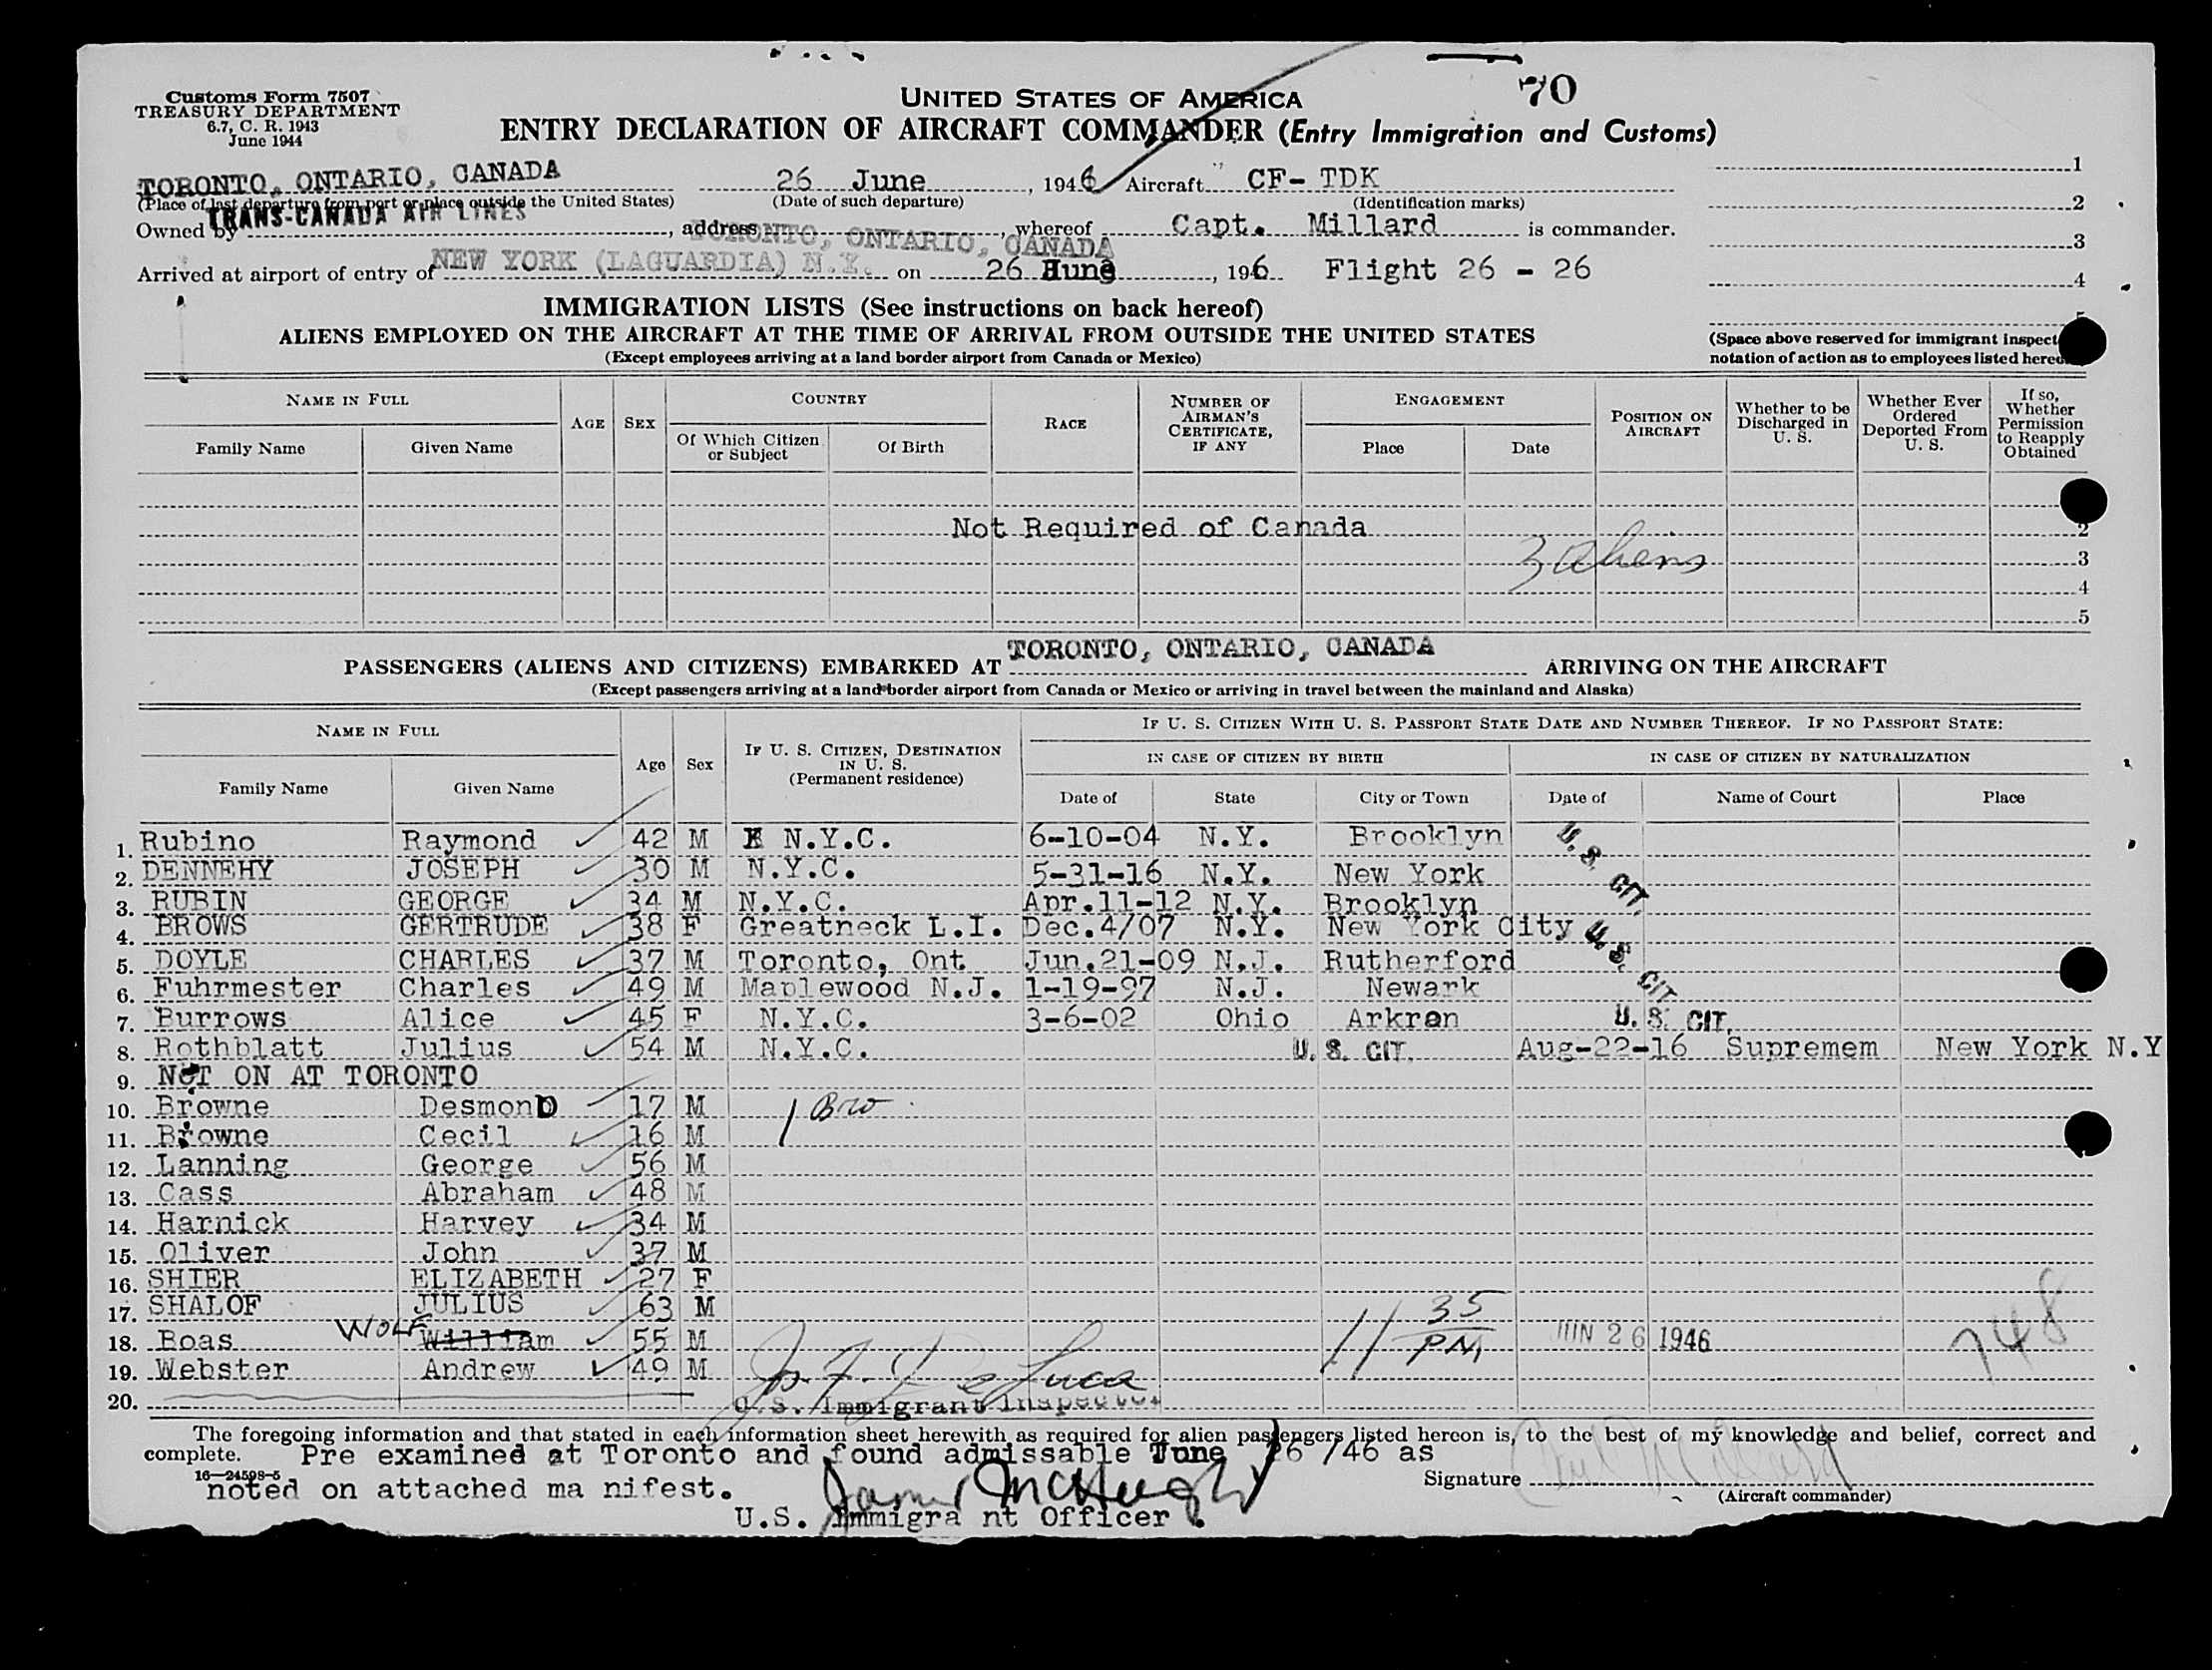 70
Customs Form 7507
TREASURY DEPARTMENT
6.7, C. R. 1943
June 1944
UNITED STATES OF AMERICA
ENTRY DECLARATION OF AIRCRAFT COMMANDER (Entry Immigration and Customs)
TORONTO, ONTARIO, CANADA 26 June, 1946 Aircraft CF- TDK 1
(Place of last departure from port or place outside the United States) (Date of such departure) (Identification marks) 2
Owned by TRANS-CANADA AIR LINES, address TORONTO, ONTARIO, CANADA, whereof Capt. Millard is commander. 3
Arrived at airport of entry of NEW YORK (LAGUARDIA) N.Y. on 26 June, 196 Flight 26 - 26 4
5
IMMIGRATION LISTS (See instructions on back hereof)
ALIENS EMPLOYED ON THE AIRCRAFT AT THE TIME OF ARRIVAL FROM OUTSIDE THE UNITED STATES
(Except employees arriving at a land border airport from Canada or Mexico)
(Space above reserved for immigrant inspect
notation of action as to employees listed hereo
NAME IN FULL AGE SEX COUNTRY RACE NUMBER OF AIRMAN'S CERTIFICATE, IF ANY ENGAGEMENT POSITION ON AIRCRAFT Whether to be Discharged in U. S. Whether Ever Ordered Deported From U. S. If so, Whether Permission to Reapply Obtained
Family Name Given Name Of Which Citizen or Subject Of Birth Place Date
Not Required of Canada 2
3 Aliens 3
4
5
PASSENGERS (ALIENS AND CITIZENS) EMBARKED AT TORONTO, ONTARIO, CANADA ARRIVING ON THE AIRCRAFT
(Except passengers arriving at a land border airport from Canada or Mexico or arriving in travel between the mainland and Alaska)
NAME IN FULL Age Sex IF U. S. CITIZEN, DESTINATION IN U. S. (Permanent residence) IF U. S. CITIZEN WITH U. S. PASSPORT STATE DATE AND NUMBER THEREOF. IF NO PASSPORT STATE:
IN CASE OF CITIZEN BY BIRTH IN CASE OF CITIZEN BY NATURALIZATION
Family Name Given Name Date of State City or Town Date of Name of Court Place
1. Rubino Raymond 42 M N.Y.C. 6-10-04 N.Y. Brooklyn U. S. CIT.
2. DENNEHY JOSEPH 30 M N.Y.C. 5-31-16 N.Y. New York
3. RUBIN GEORGE 34 M N.Y.C. Apr.11-12 N.Y. Brooklyn
4. BROWS GERTRUDE 38 F Greatneck L.I. Dec.4/07 N.Y. New York City U. S. CIT
5. DOYLE CHARLES 37 M Toronto, Ont Jun.21-09 N.J. Rutherford
6. Fuhrmester Charles 49 M Maplewood N.J. 1-19-97 N.J. Newark
7. Burrows Alice 45 F N.Y.C. 3-6-02 Ohio Arkron U. S. CIT.
8. Rothblatt Julius 54 M N.Y.C. U. S. CIT. Aug-22-16 Supremem New York N.Y
9. NOT ON AT TORONTO
10. Browne Desmond 17 M / Bro
11. Browne Cecil 16 M
12. Lanning George 56 M
13. Cass Abraham 48 M
14. Harnick Harvey 34 M
15. Oliver John 37 M
16. SHIER ELIZABETH 27 F
17. SHALOF JULIUS 63 M
18. Boas WOLF William 55 M 11 35 PM JUN 26 1946 748
19. Webster Andrew 49 M Jos. F. De Luca
20. U.S. Immigrant Inspector
The foregoing information and that stated in each information sheet herewith as required for alien passengers listed hereon is, to the best of my knowledge and belief, correct and
complete. Pre examined at Toronto and found admissable June 26 /46 as
16—24598-5 noted on attached ma nifest. James McHugh Signature
(Aircraft commander)
U.S. Immigra nt Officer .